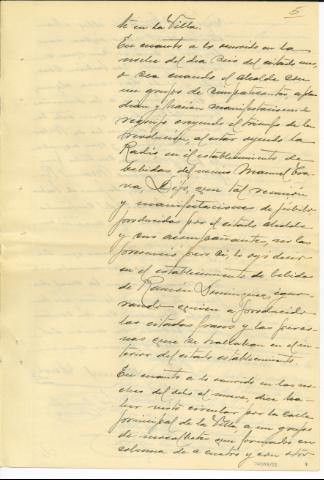 5
te en la Villa.
En cuanto a lo ocurrido en la
noche del dia seis del citado mes,
o sea cuando el alcalde con
un grupo de simpatizantes aplau
dian y hacian manifestaciones de
regocijo creyendo el triunfo de la
revolucion, al estar oyendo la
Radio en el establecimiento de
bebidas del vecino Manuel
na, Dijo, que tal reunión
y manifestaciones de júbilo
producidas por el citado alcalde
y sus acompañantes, no las
presencio pero si, lo oyó decir
en el establecimiento de bebidas
de Ramón Dominguez, igno-
rando quienes a producido
las citadas frases y las perso-
nas que se hallaban en el in-
terior del citado establecimiento.
En cuanto a lo ocurrido en las no-
ches del ocho al nueve, dice ha-
ber visto circular por la calle
principal de la Villa, a un grupo
de mozalbetes que formados en
columna de a cuatro y con otro